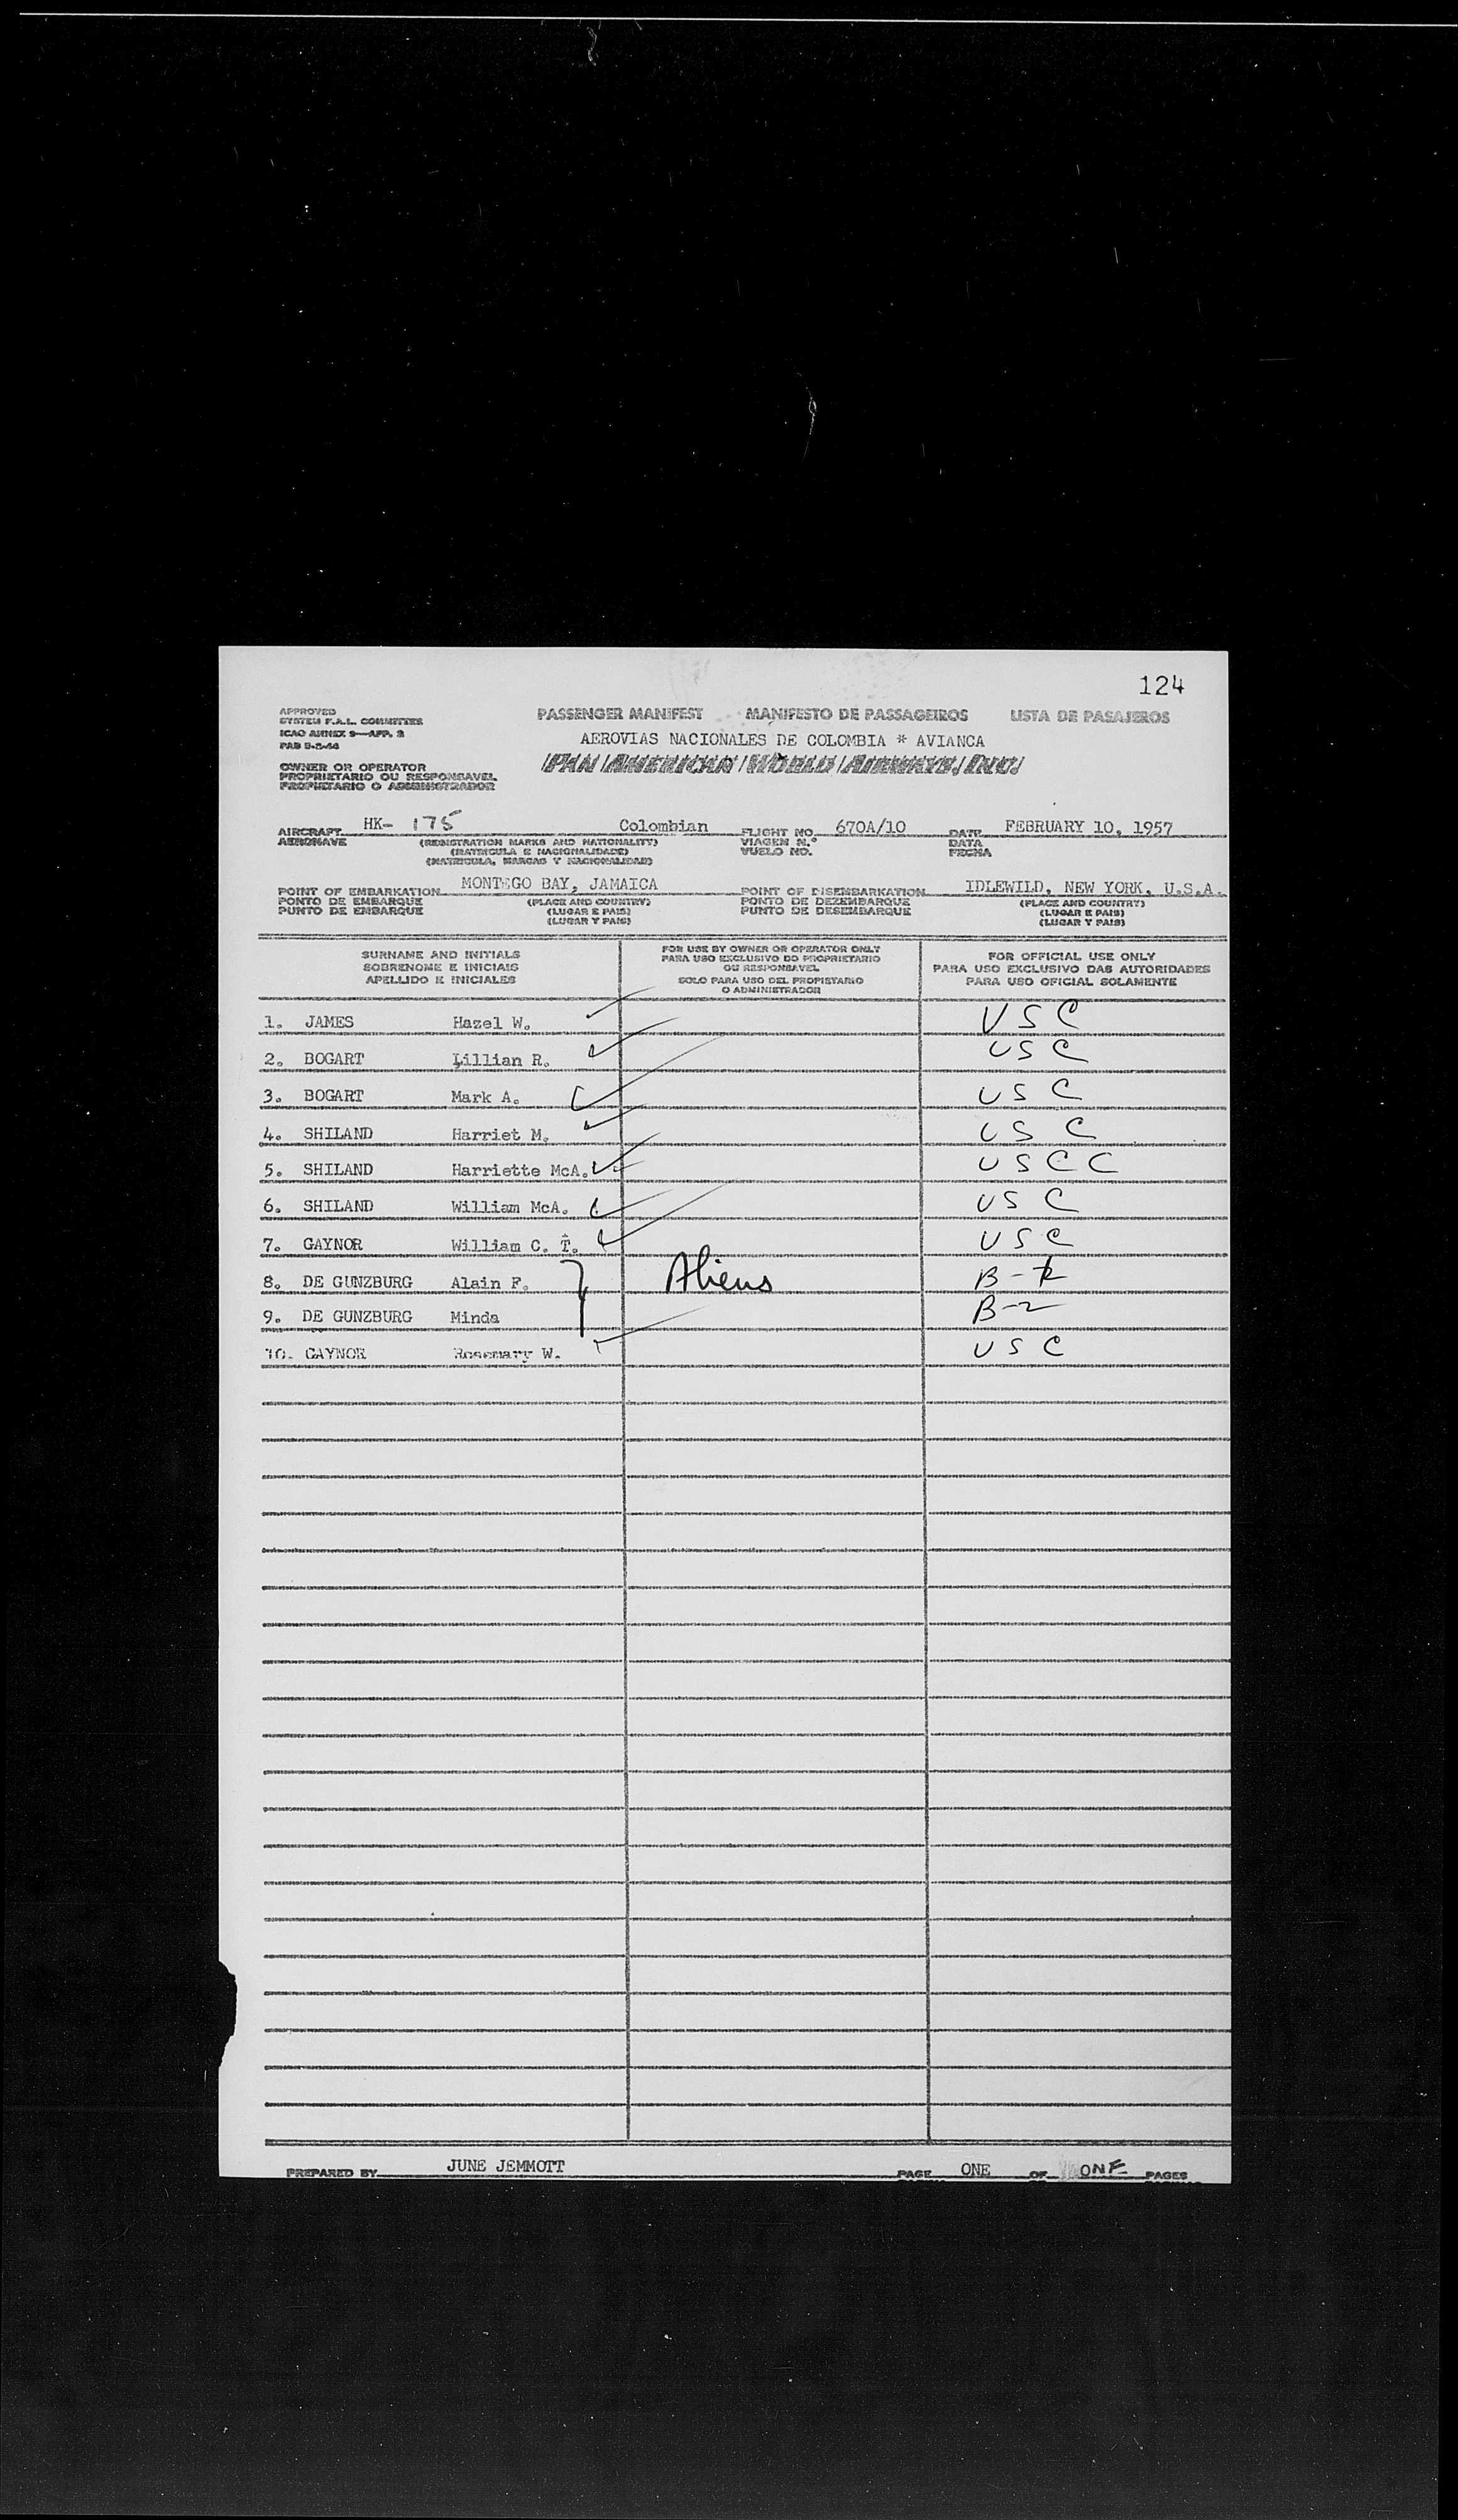 124
APPROVED
SYSTEM F.A.L. COMMITTEE
ICAO ANNEX 9—APP. 3
PASSENGER MANIFEST MANIFESTO DE PASSAGEIROS LISTA DE PASAJEROS
AEROVIAS NACIONALES DE COLOMBIA * AVIANCA
PAN AMERICAN WORLD AIRWAYS, INC.
OWNER OR OPERATOR
PROPRIETARIO OU RESPONSAVEL
PROPIETARIO O ADMINISTRADOR
AIRCRAFT HK- 175 Colombian FLIGHT NO. 670A/10 DATE FEBRUARY 10, 1957
AERONAVE (REGISTRATION MARKS AND NATIONALITY) VIAGEN N.º DATA
(MATRICULA E NACIONALIDADE) VUELO NO. FECHA
(MATRICULA, MARCAS Y NACIONALIDAD)
POINT OF EMBARKATION MONTEGO BAY, JAMAICA POINT OF DISEMBARKATION IDLEWILD, NEW YORK, U.S.A.
PONTO DE EMBARQUE (PLACE AND COUNTRY) PONTO DE DEZEMBARQUE (PLACE AND COUNTRY)
PUNTO DE EMBARQUE (LUGAR E PAIS) PUNTO DE DESEMBARQUE (LUGAR E PAIS)
(LUGAR Y PAIS) (LUGAR Y PAIS)
SURNAME AND INITIALS
SOBRENOME E INICIAIS
APELLIDO E INICIALES
FOR USE BY OWNER OR OPERATOR ONLY
PARA USO EXCLUSIVO DO PROPRIETARIO
OU RESPONSAVEL
SOLO PARA USO DEL PROPIETARIO
O ADMINISTRADOR
FOR OFFICIAL USE ONLY
PARA USO EXCLUSIVO DAS AUTORIDADES
PARA USO OFICIAL SOLAMENTE
1. JAMES Hazel W. USC
2. BOGART Lillian R. USC
3. BOGART Mark A. USC
4. SHILAND Harriet M. USC
5. SHILAND Harriette McA. USCC
6. SHILAND William McA. USC
7. GAYNOR William C. T. USC
8. DE GUNZBURG Alain F. Aliens B-2
9. DE GUNZBURG Minda B-2
10. GAYNOR Rosemary W. USC
PREPARED BY JUNE JEMMOTT PAGE ONE OF ONE PAGES